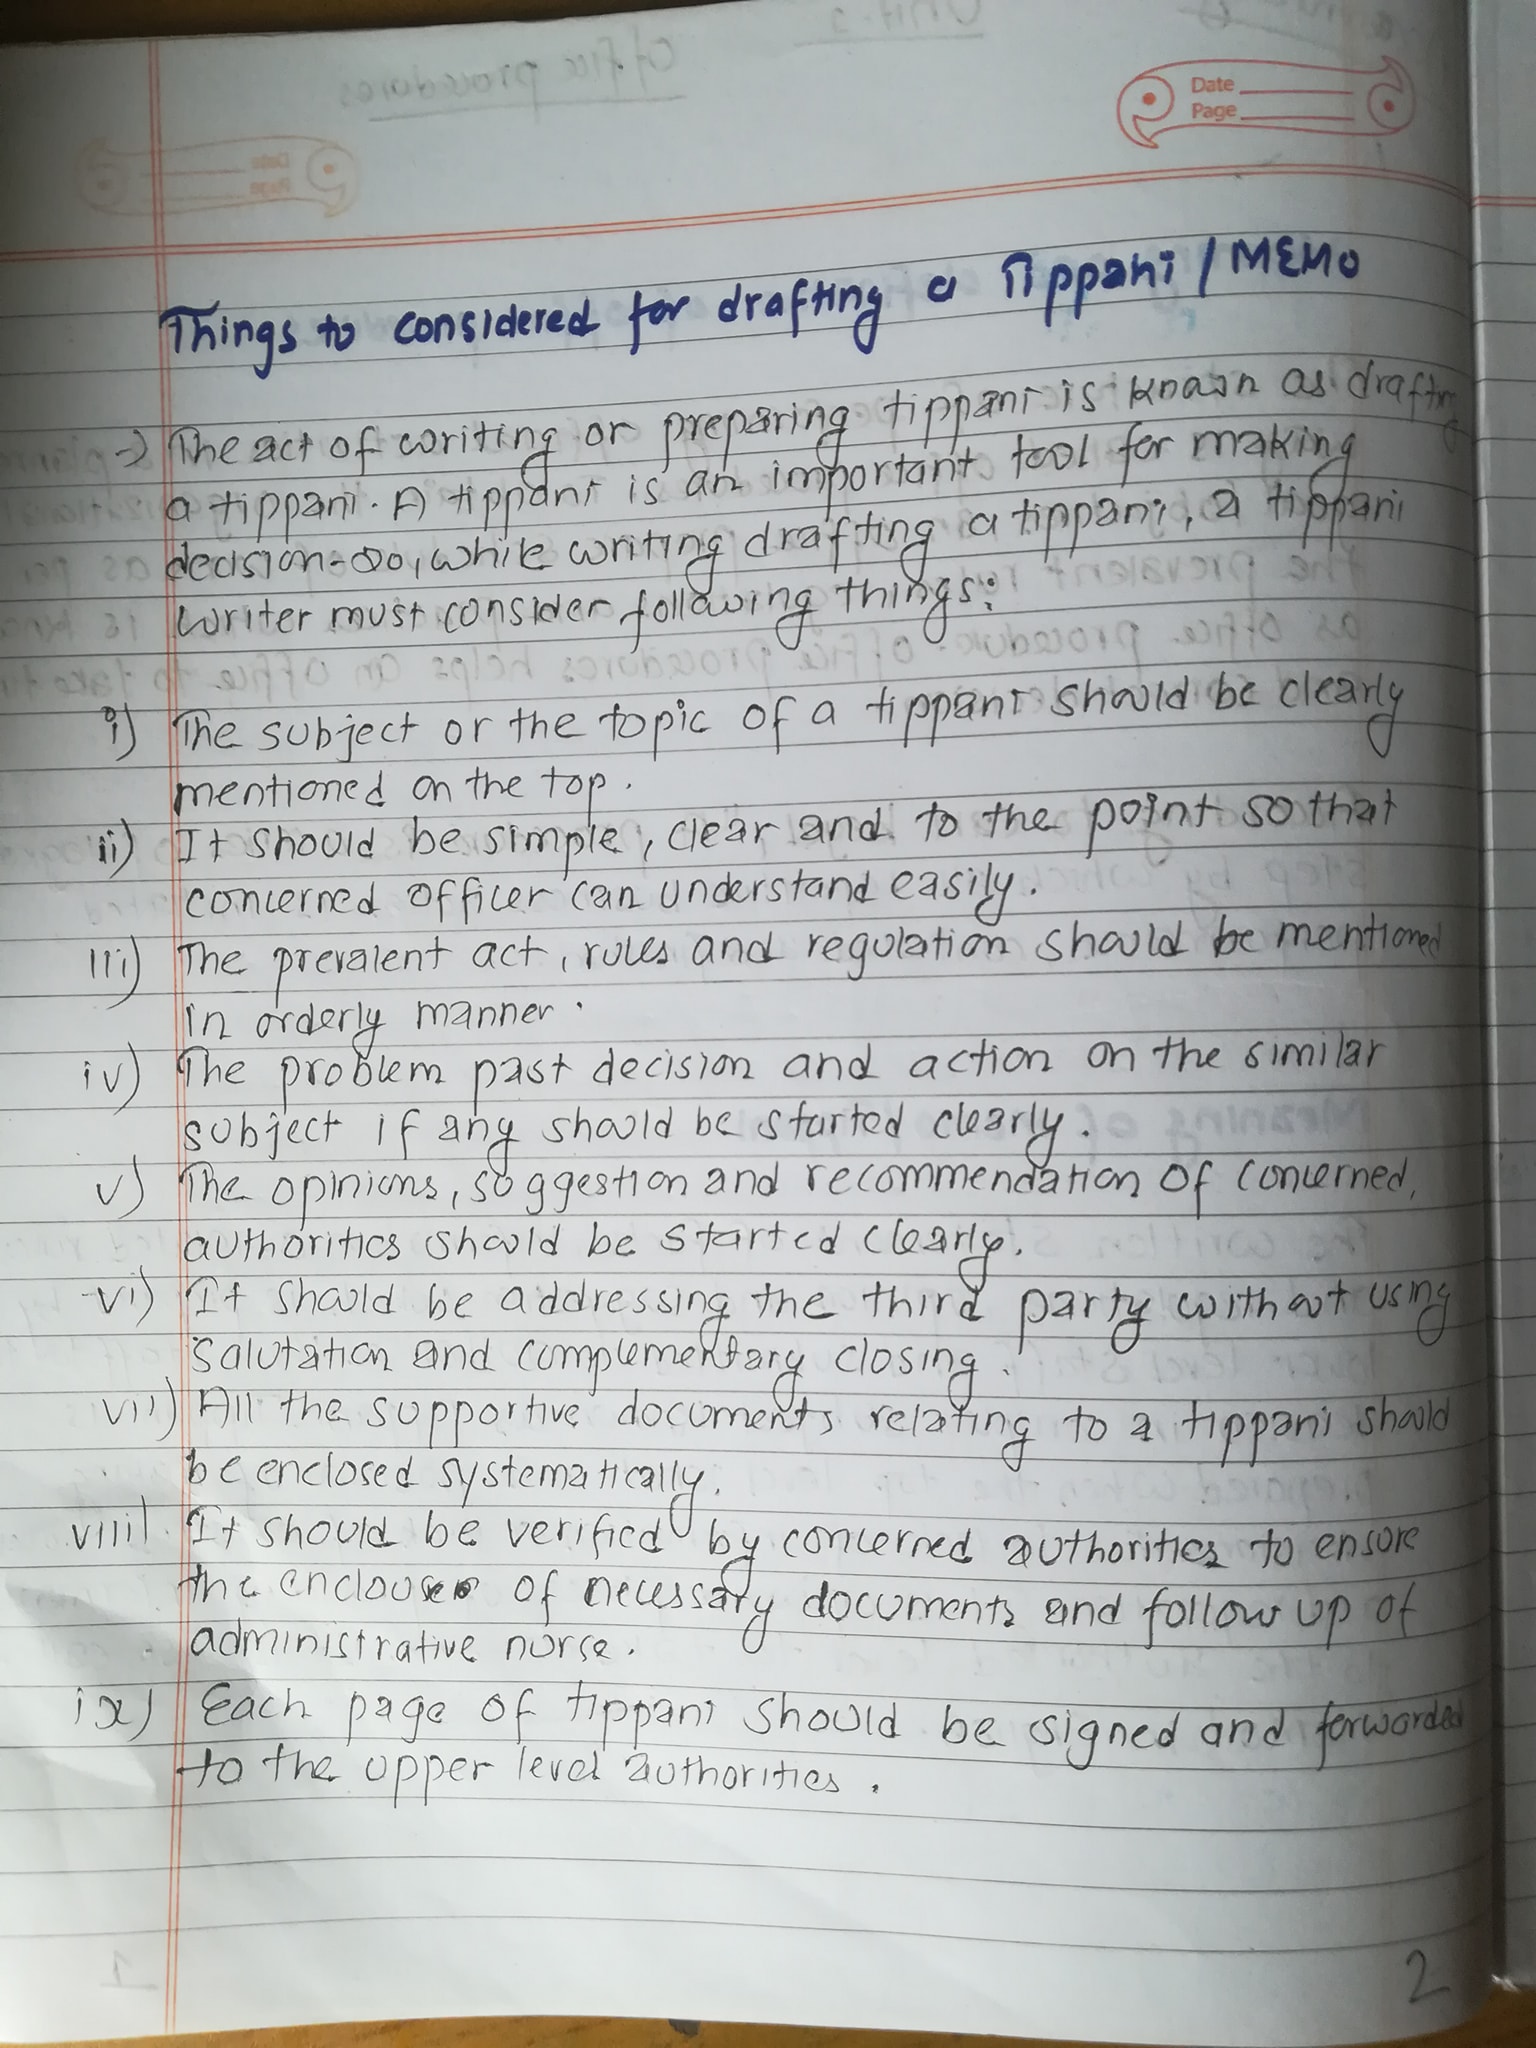 Date
Page
Things to considered for drafting a Tippani / MEMO
→ The act of writing or preparing tippani is known as drafting
a tippani. A tippani is an important tool for making
decision. So, while writing drafting a tippani, a tippani
writer must consider following things:
i) The subject or the topic of a tippani should be clearly
mentioned on the top.
ii) It should be simple, clear and to the point so that
concerned officer can understand easily.
iii) The prevalent act, rules and regulation should be mentioned
in orderly manner.
iv) The problem past decision and action on the similar
subject if any should be started clearly.
v) The opinions, suggestion and recommendation of concerned,
authorities should be started clearly.
vi) It should be addressing the third party without using
salutation and complementary closing.
vii) All the supportive documents relating to a tippani should
be enclosed systematically.
viii) It should be verified by concerned authorities to ensure
the of necessary documents and follow up of
administrative nurse.
ix) Each page of tippani should be signed and forwarded
to the upper level authorities.
2